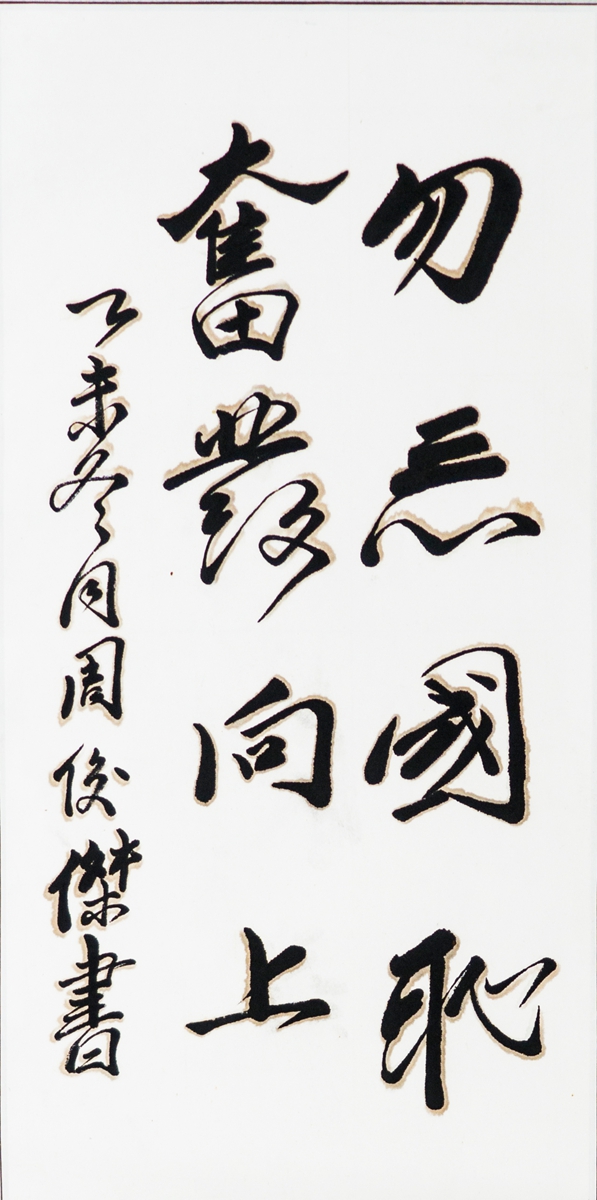 勿忘國恥
奮發向上
乙未冬月周俊傑書